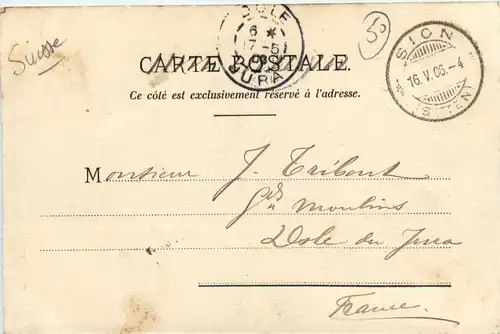 Suisse
50
DOLE
6 *
17-5
06
JURA
SION
16.V.06.-4
(SITTEN)
CARTE POSTALE.
Ce côté est exclusivement réservé à l'adresse.
Monsieur J. Tribout
Gds Moulins
Dole du Jura
France